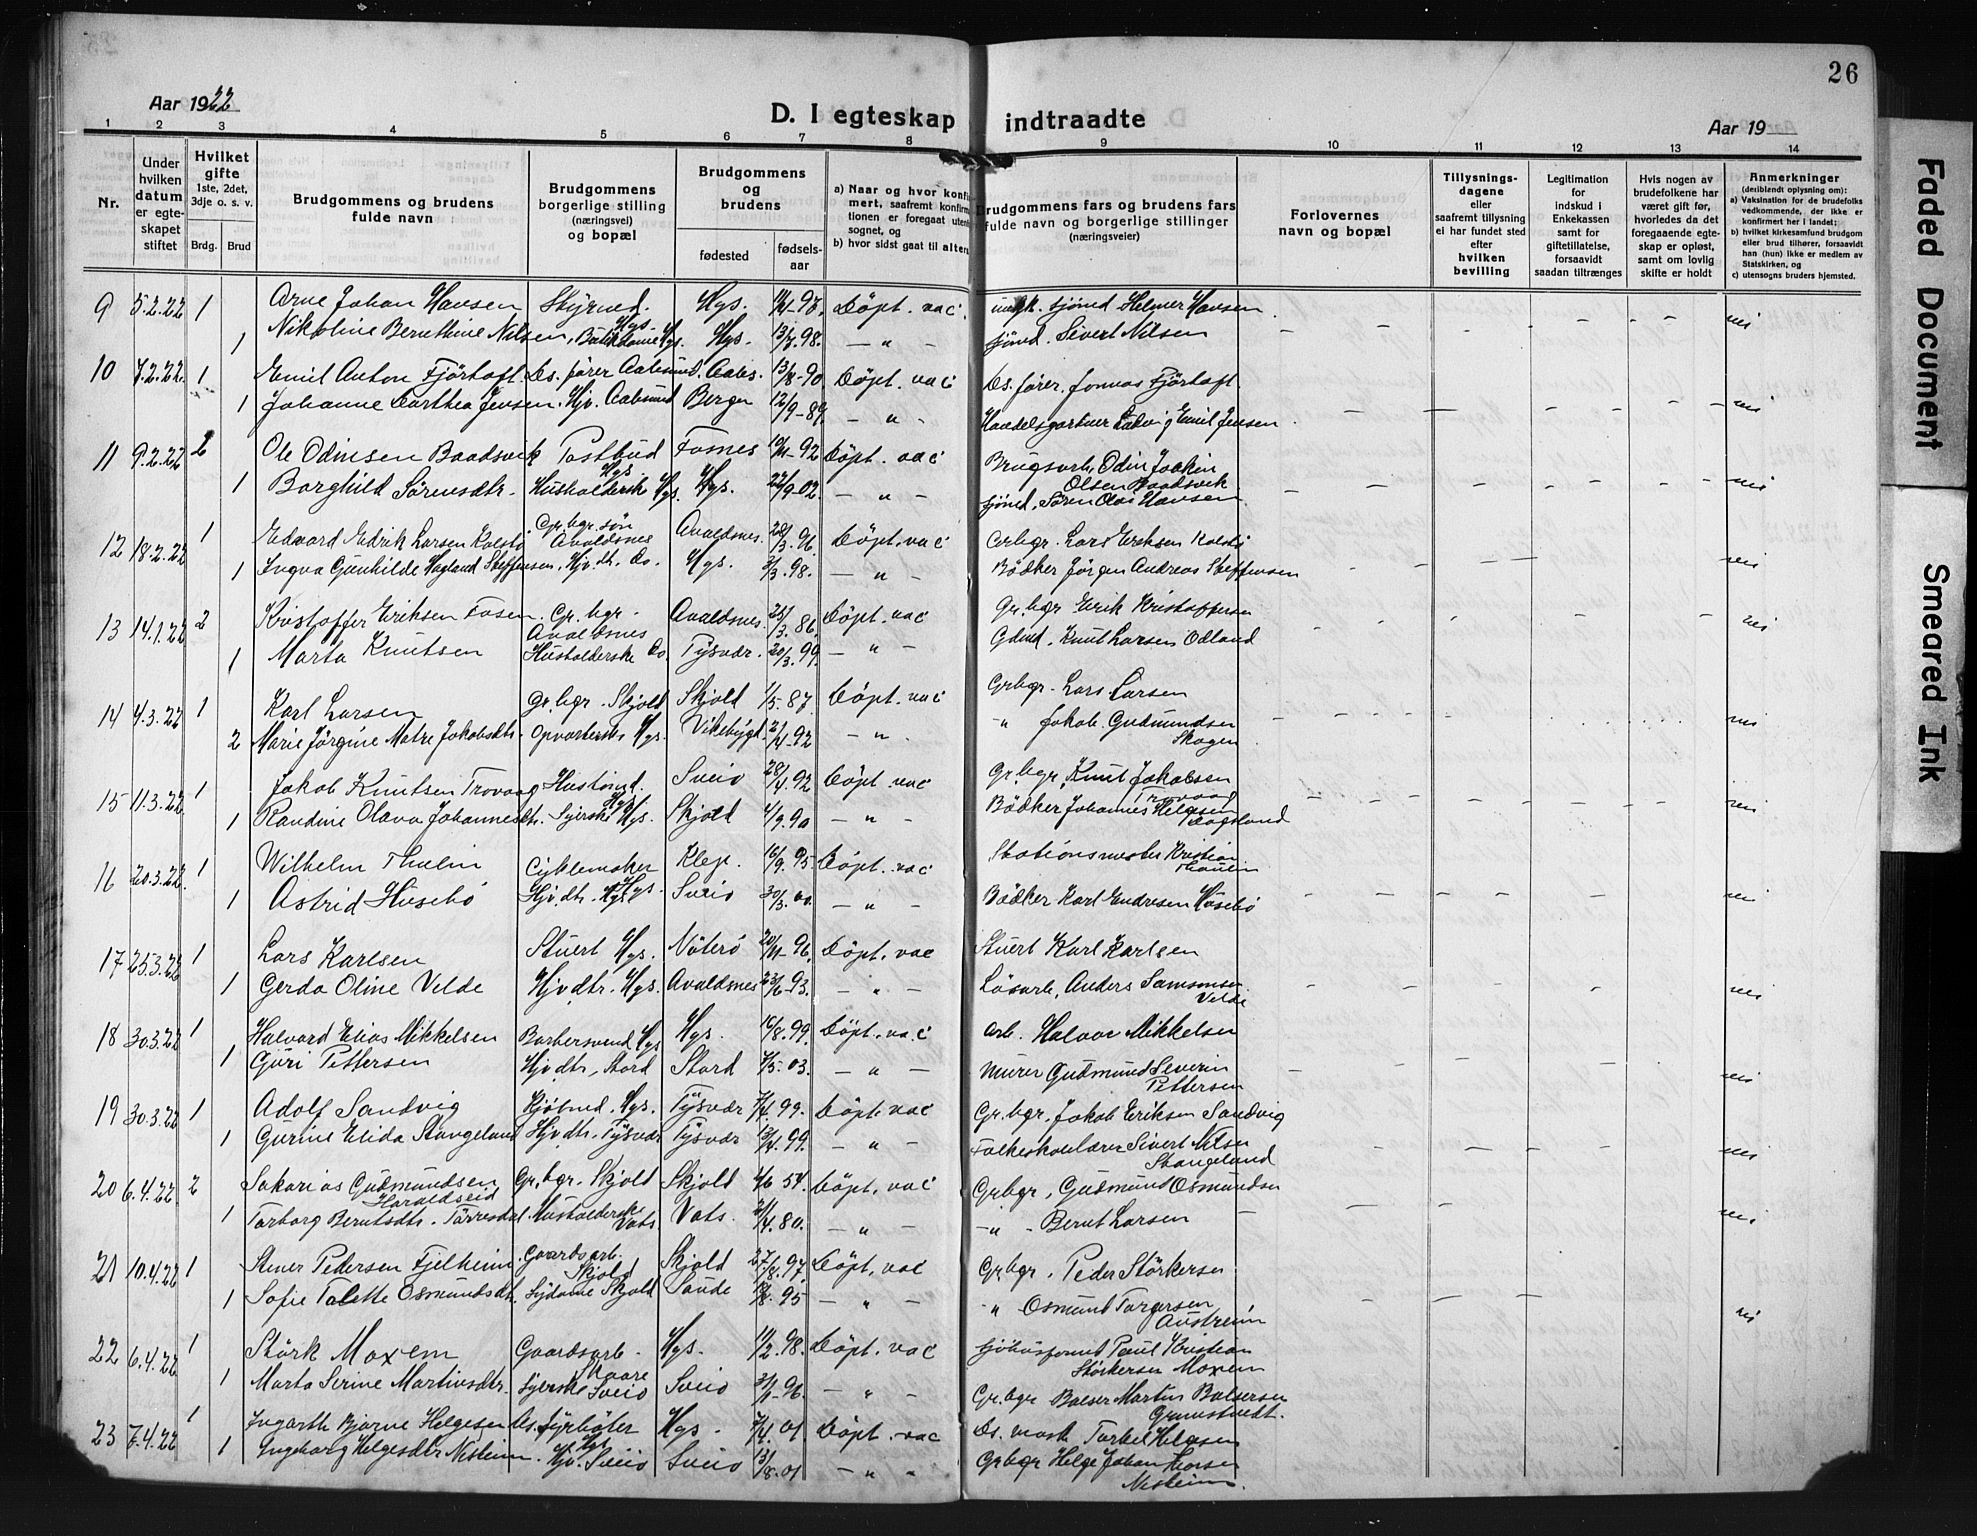 26
Aar 1922
D. I egteskap indtraadte
Aar 19
1 2 3 4 5 6 7 8 9 10 11 12 13 14
Nr.
Under hvilken datum er egteskapet stiftet
Hvilket gifte 1ste, 2det, 3dje o. s. v.
Brdg. Brud
Brudgommens og brudens fulde navn
Brudgommens borgerlige stilling (næringsvei) og bopæl
Brudgommens og brudens
fødested fødselsaar
a) Naar og hvor konfirmert, saafremt konfirmationen er foregaat utenfor sognet, og
b) hvor sidst gaat til alters
Brudgommens fars og brudens fars fulde navn og borgerlige stillinger (næringsveier)
Forlovernes navn og bopæl
Tillysningsdagene eller saafremt tillysning ei har fundet sted efter hvilken bevilling
Legitimation for indskud i Enkekassen samt for giftetillatelse, forsaavidt saadan tiltrænges
Hvis nogen av brudefolkene har været gift før, hvorledes da det foregaaende egteskap er opløst, samt om lovlig skifte er holdt
Anmerkninger
(deriblandt oplysning om):
a) Vaksination for de brudefolks vedkommende, der ikke er konfirmert her i landet;
b) hvilket kirkesamfund brudgom eller brud tilhører, forsaavidt han (hun) ikke er medlem av Statskirken, og
c) utensogns bruders hjemsted.
9 5.2.22 1 Arne Johan Hansen Styrmd. Hgs. Hgs. Döpt. vac. Sjömd Helmer Hansen
1 Nikoline Bernthine Nilsen, Hgs. Hgs. 13/7.98. — " — Sjömd. Sivert Nilsen nei
10 7.2.22. 1 Emil Anton Fjörtoft Ds. förer Aalesund. Aales. 13/8-90 Döpt. vac Ds. förer. Jonas Fjörtoft
1 Johanne Dorthea Jensen. Hjv. Aalesund Bergen 12/9-89 — " — Handelsgartner Ludvig Emil Jensen nei
11 9.2.22 2 Ole Odinsen Baadsvik Postbud Hgs. Fosnes 10/11-92 Döpt. vac Brugsarb. Odin Joakin Olsen Baadsvik
1 Borghild Sörensdtr. Husholderske Hgs. Hgs. 22/9-02. — " — Sjömd. Sören Olai Hansen nei
12 18.2.22 1 Edvard Edrik Larsen Kolstö Gr.bgr. sön Avaldsnes Avaldsnes. 28/3.96. Döpt. vac Grbgr. Lars Eriksen Kolstö
1 Ingva Gunhilde Hagland Steffensen. Hjv. dtr. Do. Hgs. 3/3.98. — " — Bödker Jörgen Andreas Steffensen nei
13 14.1.22 2 Kristoffer Eriksen Fosen. Gr. bgr. Avaldsnes Avaldsnes. 25/3.86. Döpt. vac Gr. bgr Erik Kristoffersen
1 Marta Knutsen Husholderske Do. Tysvær. 20/3.99. — " — Gdmd. Knut Larsen Odland nei
14 4.3.22 1 Karl Larsen Gr. bgr. Skjold Skjold 1/5.87. Döpt. vac Grbgr. Lars Larsen
2 Marie Jörgine Matre Jakobsdtr. Opvarterske Hgs. Vikebygd 21/4.92 — " — — " Jakob Gudmundsen Skogen nei
15 11.3.22 1 Jakob Knutsen Trovaag Hustömd. Hgs. Sveio 28/4.92 Döpt. vac Gr. bgr. Knut Jakobsen Trovaag
1 Randine Olava Johannesdtr. Syerske Hgs. Skjold 4/9.90 — " — Bödker Johannes Helgesen nei
16 20.3.22. 1 Wilhelm Thulin Cyklemaker Hgs. Klep. 16/9.95 Döpt. vac Stationsmester Kristian
1 Astrid Husebö Hjv. dtr. Hgs. Sveio 30/3.00. — " — Bödker Karl Endresen Husebö nei
17 25.3.22 1 Lars Karlsen Stuert Hgs. Nöterö 20/11-96. Döpt. vac Stuert Karl Karlsen
1 Gerda Oline Velde Hjv dtr. Hgs. Avaldsnes 23/6-93. — " — Lösarb. Anders Samsonsen Velde nei
18 30.3.22 1 Halvard Elias Mikkelsen Barbersvend Hgs Hgs. 16/8.99. Döpt. vac arb. Halvor Mikkelsen
1 Guri Pettersen Hjv. dtr. Stord Stord 7/5-03. — " — Murer Gudmund Severin Pettersen nei
19 30.3.22 1 Adolf Sandvig Hgs. Tysvær 7/4.99. Döpt. vac Gr. bgr. Jakob Eriksen Sandvig
1 Gurine Elida Stangeland Hjv dtr. Tysvær Tysvær 13/4.99. — " — Folkeskolelærer Sivert Nilsen Stangeland nei
20 6.4.22 2 Sakarias Gudmundsen Haraldseid Gr. bgr. Skjold Skjold 4/6 54. Döpt. vac Grbgr. Gudmund Osmundsen
1 Torborg Berntsdtr. Törresdal Husholderske Vats. Vats. 21/4.80. — " — — " — Bernt Larsen nei
21 10.4.22 1 Stener Pedersen Fjelheim Gaardsarb. Skjold Skjold 27/8.97. Döpt. vac Gr. bgr. Peder Störkersen
1 Sofie Talette Osmundsdtr. Sydame Skjold Saude 8.95 — " — — " Osmund Torgersen Austreim nei
22 6.4.22 1 Störk Moxem Gaardsarb. Skaare Hgs. 11/2.98. Döpt. vac Paul Kristian Störkersen Moxem
1 Marta Serine Martinsdtr. Syerske Sveio Sveio 96 — " — Gr. bgr Balser Martin Balsersen
23 7.4.22 1 Ingarth Bjarne Helgesen Ds. fyrböter Hgs Hgs. 7/4.01 Döpt. vac Ds. mask Torkel Helgesen
1 Ingeborg Helgesdtr. Nistein. Hjv. Sveio Sveio 13/8.01 — " — Gr bgr Helge Johan Nistein.
Faded Document
Smeared Ink